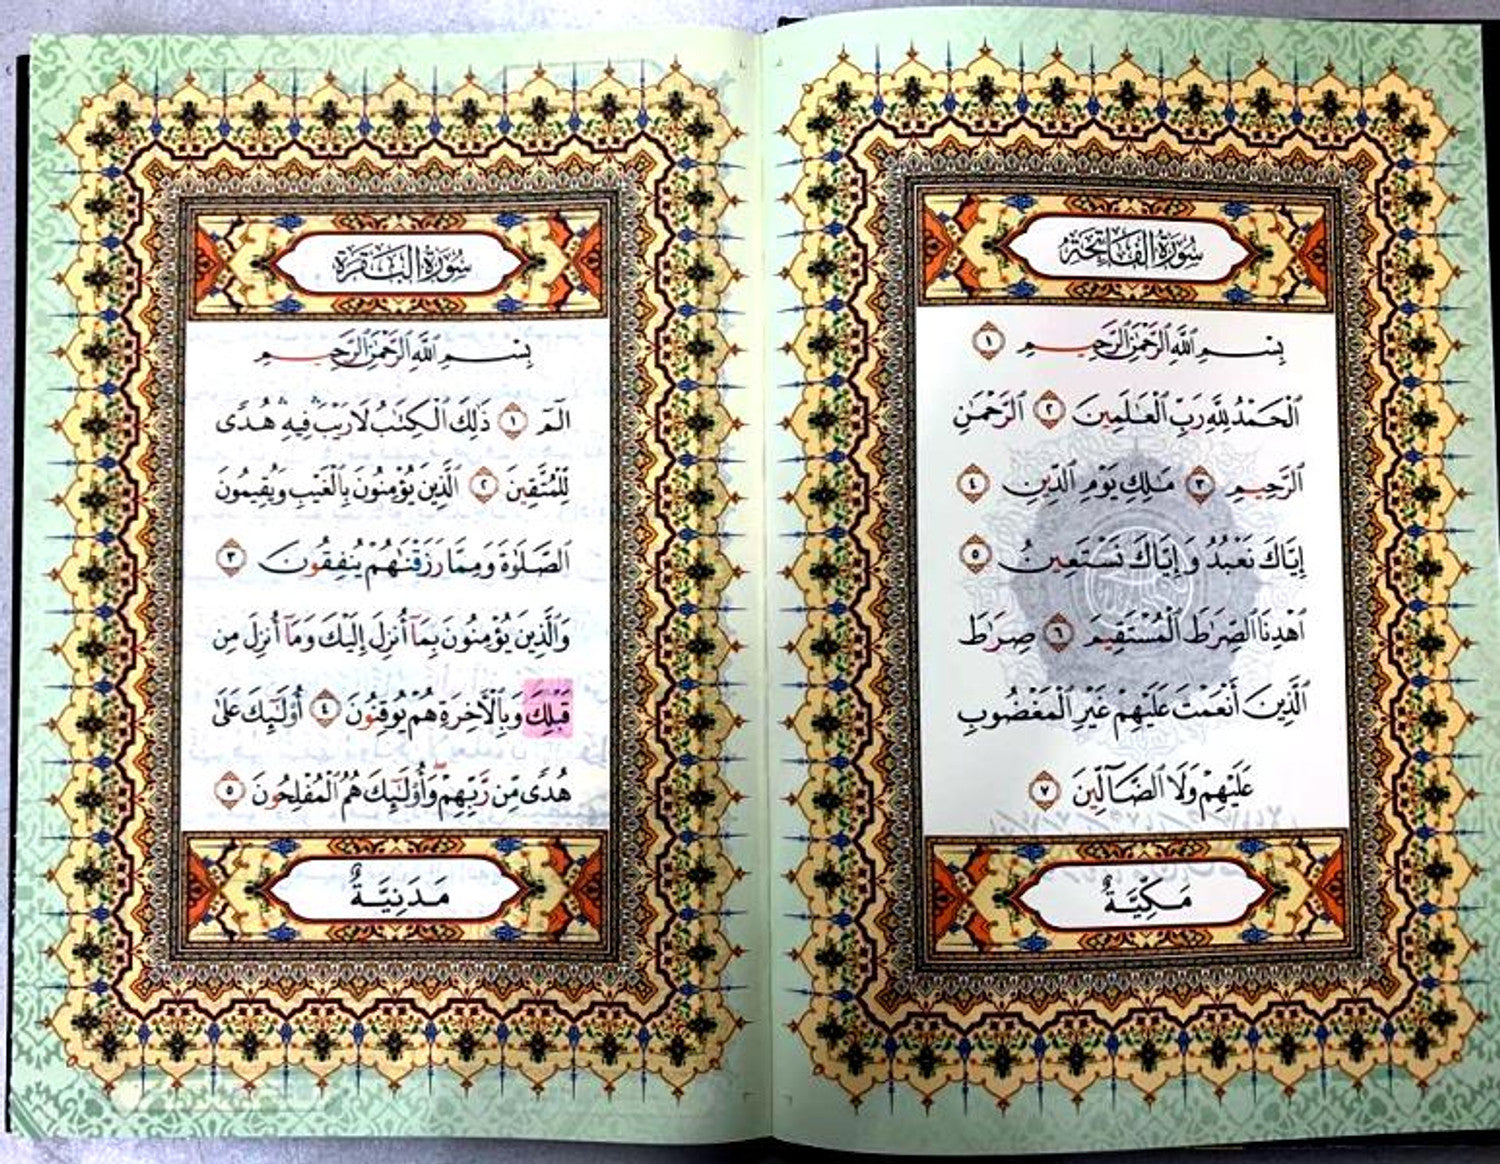 سُورَةُ الفَاتِحَةِ
بِسْمِ ٱللَّهِ ٱلرَّحْمَٰنِ ٱلرَّحِيمِ ١
ٱلْحَمْدُ لِلَّهِ رَبِّ ٱلْعَٰلَمِينَ ٢ ٱلرَّحْمَٰنِ
ٱلرَّحِيمِ ٣ مَٰلِكِ يَوْمِ ٱلدِّينِ ٤
إِيَّاكَ نَعْبُدُ وَإِيَّاكَ نَسْتَعِينُ ٥
ٱهْدِنَا ٱلصِّرَٰطَ ٱلْمُسْتَقِيمَ ٦ صِرَٰطَ
ٱلَّذِينَ أَنْعَمْتَ عَلَيْهِمْ غَيْرِ ٱلْمَغْضُوبِ
عَلَيْهِمْ وَلَا ٱلضَّآلِّينَ ٧
مَكِّيَّةٌ
سُورَةُ البَقَرَةِ
بِسْمِ ٱللَّهِ ٱلرَّحْمَٰنِ ٱلرَّحِيمِ
الٓمٓ ١ ذَٰلِكَ ٱلْكِتَٰبُ لَا رَيْبَ ۛ فِيهِ ۛ هُدًى
لِّلْمُتَّقِينَ ٢ ٱلَّذِينَ يُؤْمِنُونَ بِٱلْغَيْبِ وَيُقِيمُونَ
ٱلصَّلَوٰةَ وَمِمَّا رَزَقْنَٰهُمْ يُنفِقُونَ ٣
وَٱلَّذِينَ يُؤْمِنُونَ بِمَآ أُنزِلَ إِلَيْكَ وَمَآ أُنزِلَ مِن
قَبْلِكَ وَبِٱلْءَاخِرَةِ هُمْ يُوقِنُونَ ٤ أُو۟لَٰٓئِكَ عَلَىٰ
هُدًى مِّن رَّبِّهِمْ ۖ وَأُو۟لَٰٓئِكَ هُمُ ٱلْمُفْلِحُونَ ٥
مَدَنِيَّةٌ